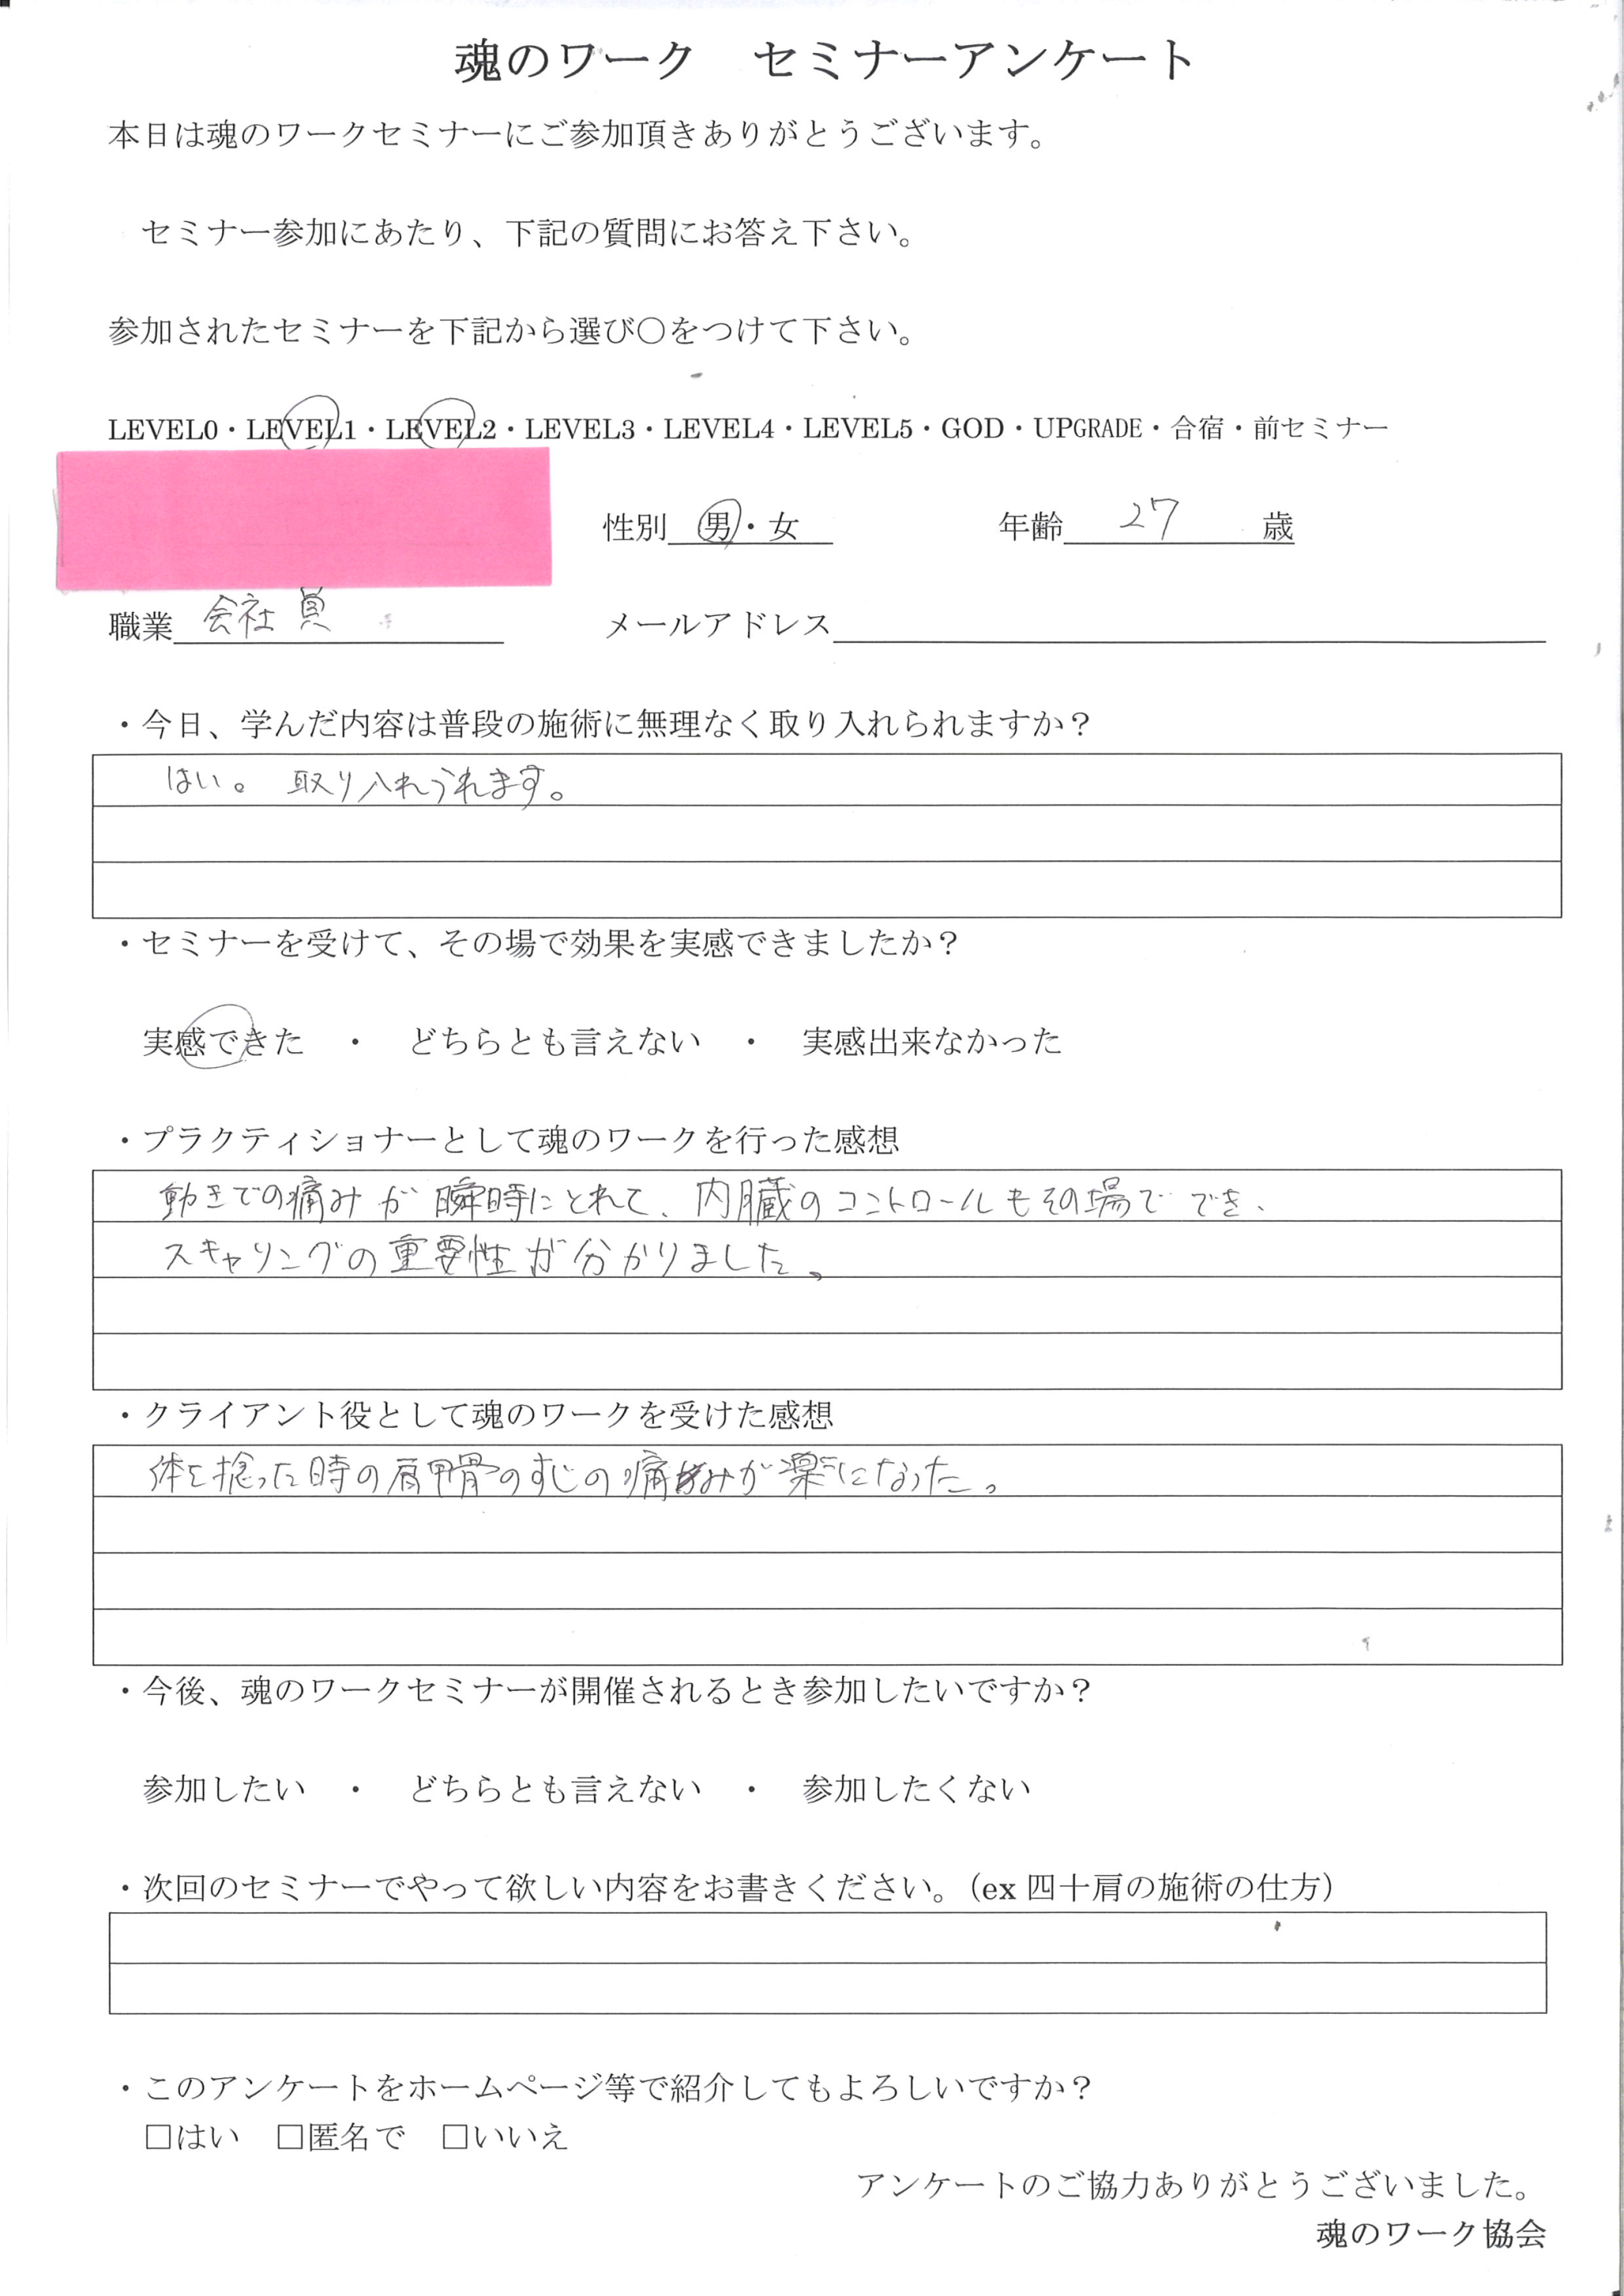 魂のワーク　セミナーアンケート
本日は魂のワークセミナーにご参加頂きありがとうございます。
セミナー参加にあたり、下記の質問にお答え下さい。
参加されたセミナーを下記から選び〇をつけて下さい。
LEVEL0・LEVEL1・LEVEL2・LEVEL3・LEVEL4・LEVEL5・GOD・UPGRADE・合宿・前セミナー
性別　男・女　年齢　27　歳
職業　会社員　メールアドレス
・今日、学んだ内容は普段の施術に無理なく取り入れられますか？
はい。　取り入れられます。
・セミナーを受けて、その場で効果を実感できましたか？
実感できた　・　どちらとも言えない　・　実感出来なかった
・プラクティショナーとして魂のワークを行った感想
動きでの痛みが瞬時にとれて、内臓のコントロールもその場ででき、
スキャリングの重要性が分かりました。
・クライアント役として魂のワークを受けた感想
体を捻った時の肩甲骨のすじの痛みが楽になった。
・今後、魂のワークセミナーが開催されるとき参加したいですか？
参加したい　・　どちらとも言えない　・　参加したくない
・次回のセミナーでやって欲しい内容をお書きください。（ex 四十肩の施術の仕方）
・このアンケートをホームページ等で紹介してもよろしいですか？
□はい　□匿名で　□いいえ
アンケートのご協力ありがとうございました。
魂のワーク協会